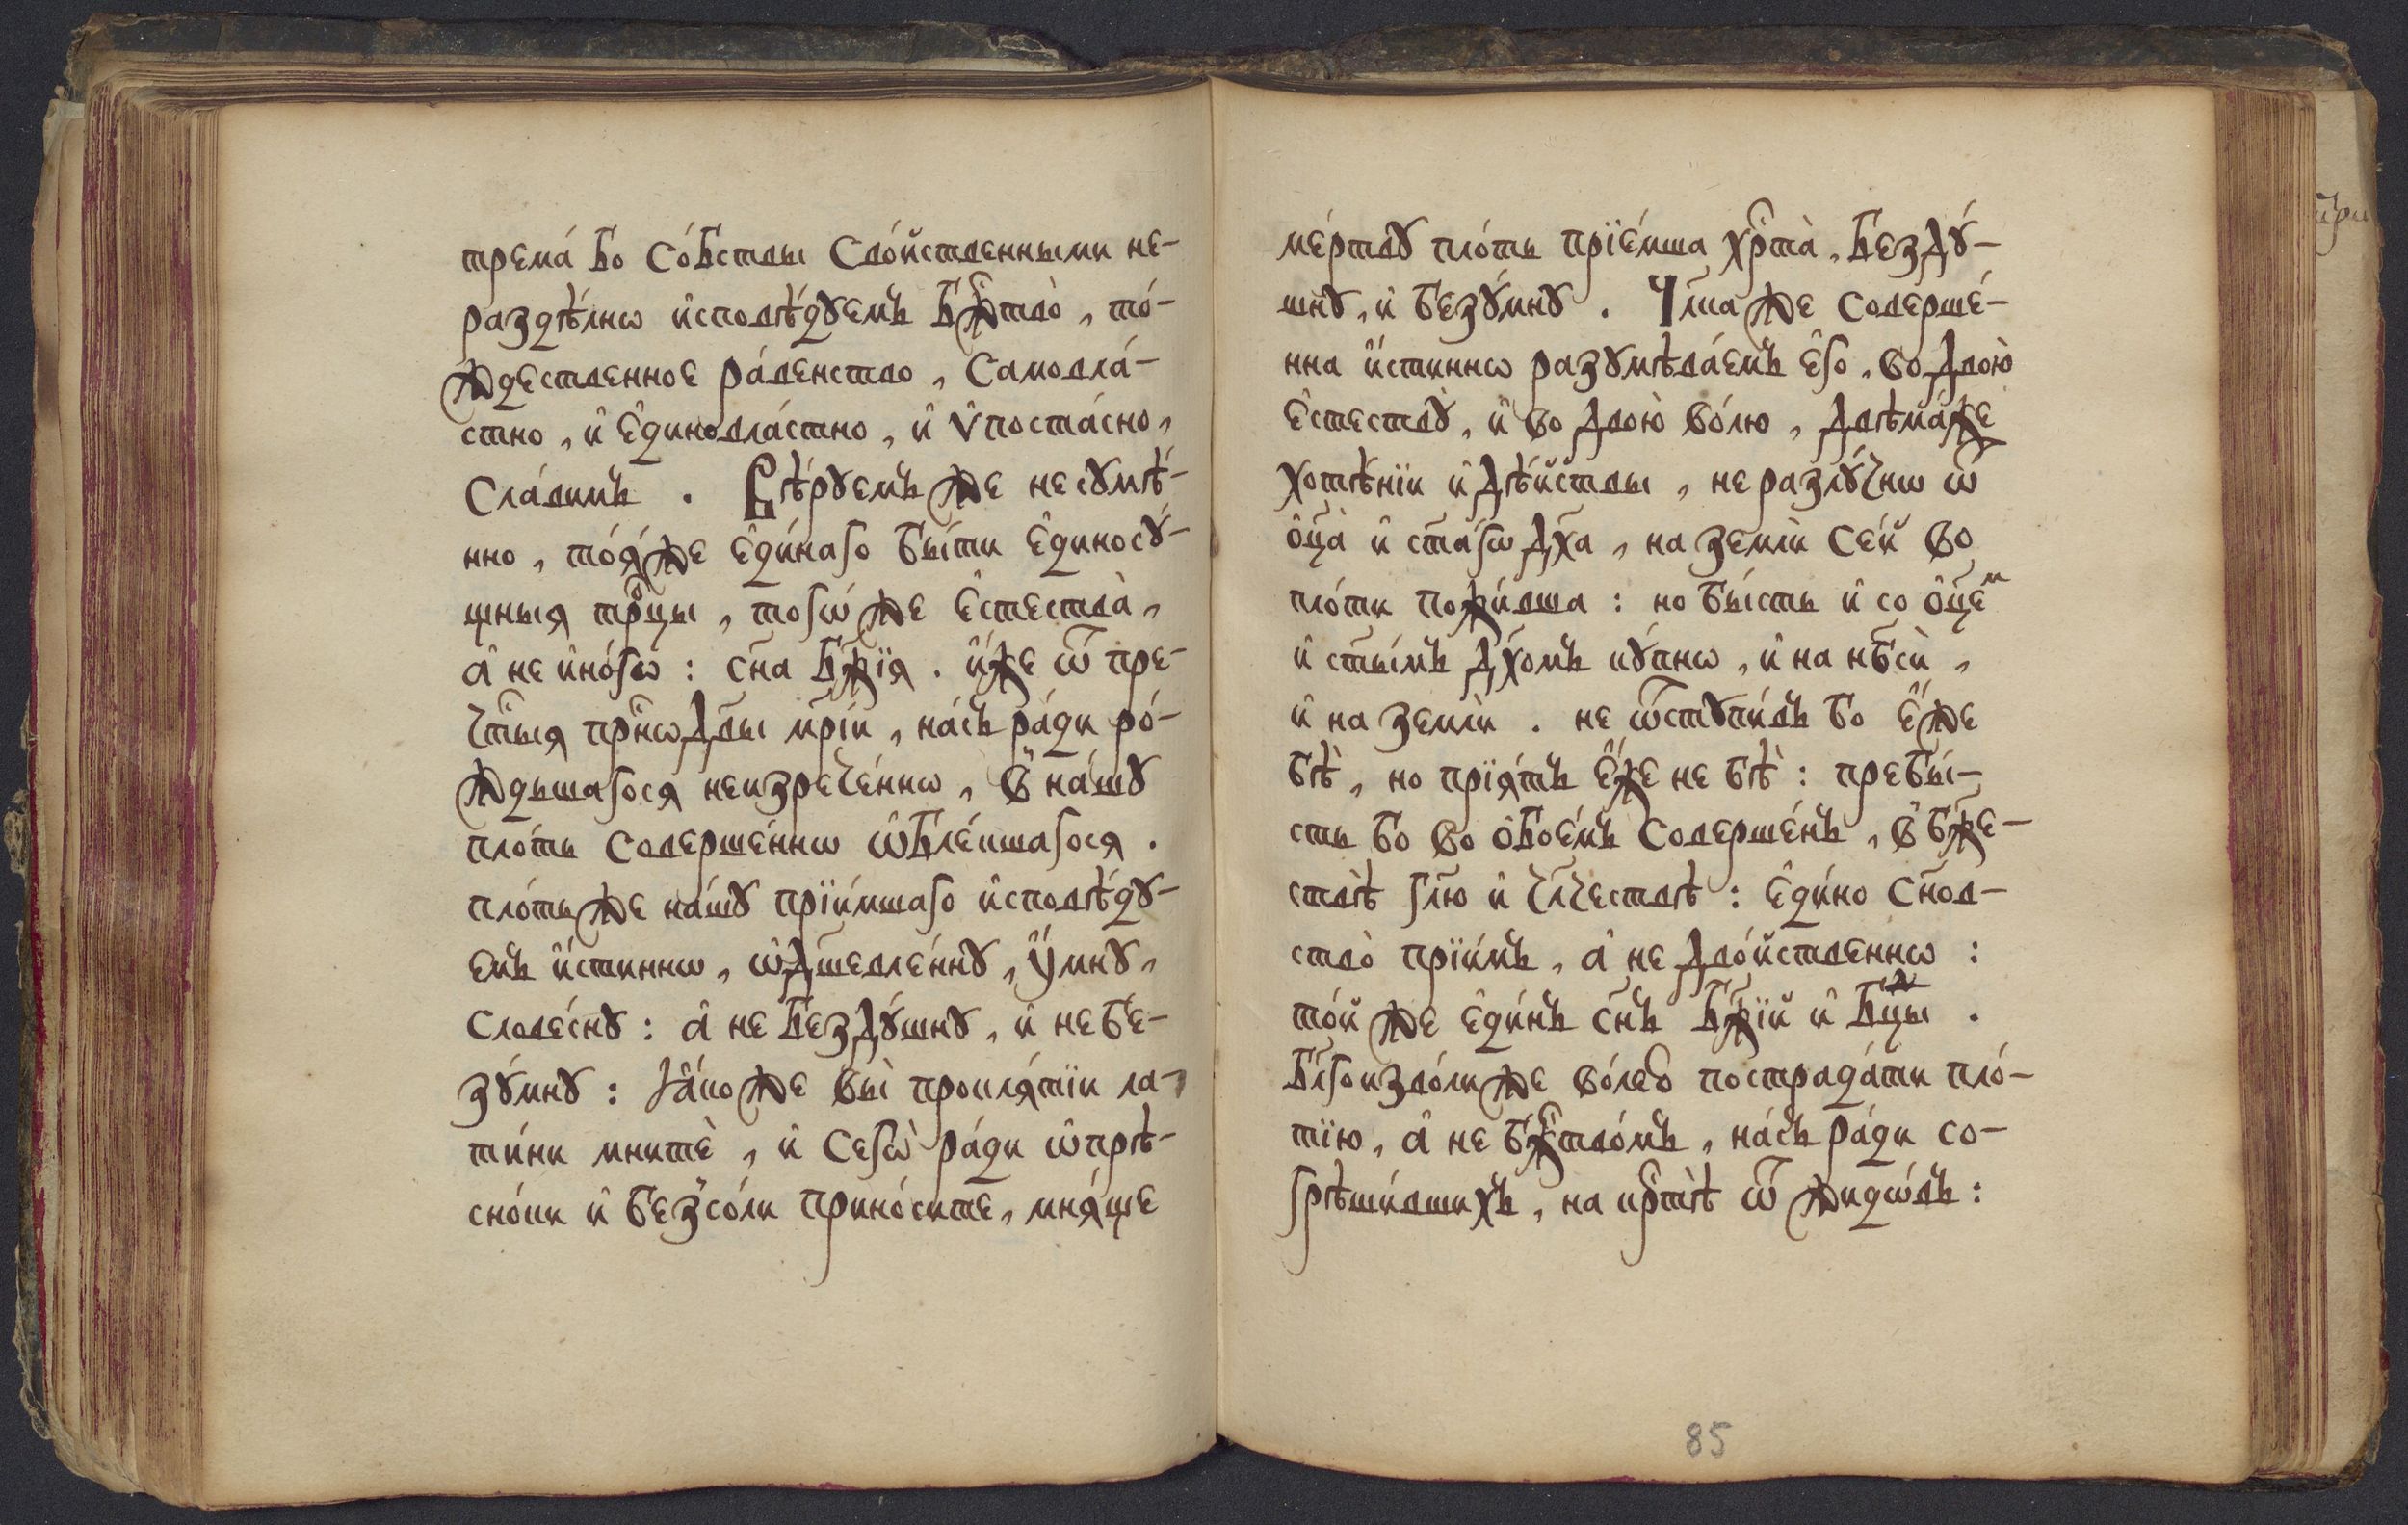 трема́ бо со́бствы сво́йственными не-
раздѣ́лнѡ и҆сповѣ́дꙋемъ бж҃тво̀, то́-
ждественное ра́венство, самовла́-
стно, и҆ є҆диновла́стно, и҆ ѵ҆поста́сно,
сла́вимъ. Вѣ́рꙋемъ же несꙋмѣ́-
нно, тоя́же є҆ди́наго бы́ти є҆диносꙋ́-
щныя трⷪ҇цы, тогѡ́ же є҆стества̀,
а҆ не и҆но́гѡ: сн҃а бж҃їя. и҆́же ѿ пре-
чⷭ҇тыя прⷭ҇нѡдв҃ы мр҃іи, на́съ ра́ди ро́-
ждьшагося неизрече́ннѡ, в̾ на́шꙋ
пло́ть соверше́ннѡ ѡ҆бле́кшагося.
пло́ть же на́шꙋ прїи́мшаго и҆сповѣ́дꙋ-
емъ и҆́стиннѡ, ѡ҆дш҃евле́ннꙋ, у҆́мнꙋ,
слове́снꙋ: а҆ не бездꙋ́шнꙋ, и҆ небе-
зꙋ́мнꙋ: ꙗ҆́коже вы̀ прокля́тїи ла-
ти́ни мнитѐ, и҆ сегѡ̀ ра́ди ѡ҆прѣ-
сно́ки и҆ без̾со́ли прино́сите, мня́ще
ме́ртвꙋ пло́ть прїе́мша хрⷭ҇та̀, бездꙋ́-
шнꙋ, и҆ безꙋ́мнꙋ. Чл҃ка же соверше́-
нна и҆́стиннѡ разꙋмѣва́емъ є҆го, во двою̀
є҆стествꙋ̀, и҆ во двою̀ во́лю, двѣма́же
хотѣ́нїи и҆ дѣ́йствы, не разлꙋ́чнѡ ѿ
ѻ҆ц҃а̀ и҆ ст҃а́гѡ дх҃а, на землѝ се́й во
пло́ти пожи́вша: но бы́сть и҆ со ѻ҆ц҃еⷨ
и҆ ст҃ы́мъ дх҃омъ кꙋ́пнѡ, и҆ на нб҃сѝ,
и҆ на землѝ. не ѿстꙋпи́въ бо є҆́же
бѣ̀, но прїя́тъ є҆́же не бѣ̀: пребы́-
сть бо во ѻ҆бое́мъ соверше́нъ, в̾ бж҃е-
ствѣ̀ гл҃ю и҆ чл҃чествѣ: є҆ди́но сн҃ов-
ство̀ прїи́мъ, а҆ не дво́йственнѡ:
то́й же є҆ди́нъ сн҃ъ бж҃їй и҆ бцⷣы.
Бл҃гоизво́ли же во́лею пострада́ти пло́-
тїю, а҆ не бжⷭ҇тво́мъ, на́съ ра́ди со-
грѣши́вшихъ, на крⷭ҇тѣ̀ ѿ жидѡ́въ:
85